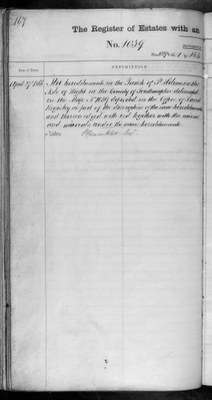 167
The Register of Estates with an
No. 1039
DESCRIPTION
Date of Entry
April 7th 1866 All hereditaments in the Parish of St. Helens in the
Isle of Wight in the County of Southampton delineated
on the Map No. 1039 deposited in the Office of Land
Registry as part of the description of the same hereditaments
and thereon edged with red together with the mines
and minerals under the same hereditaments